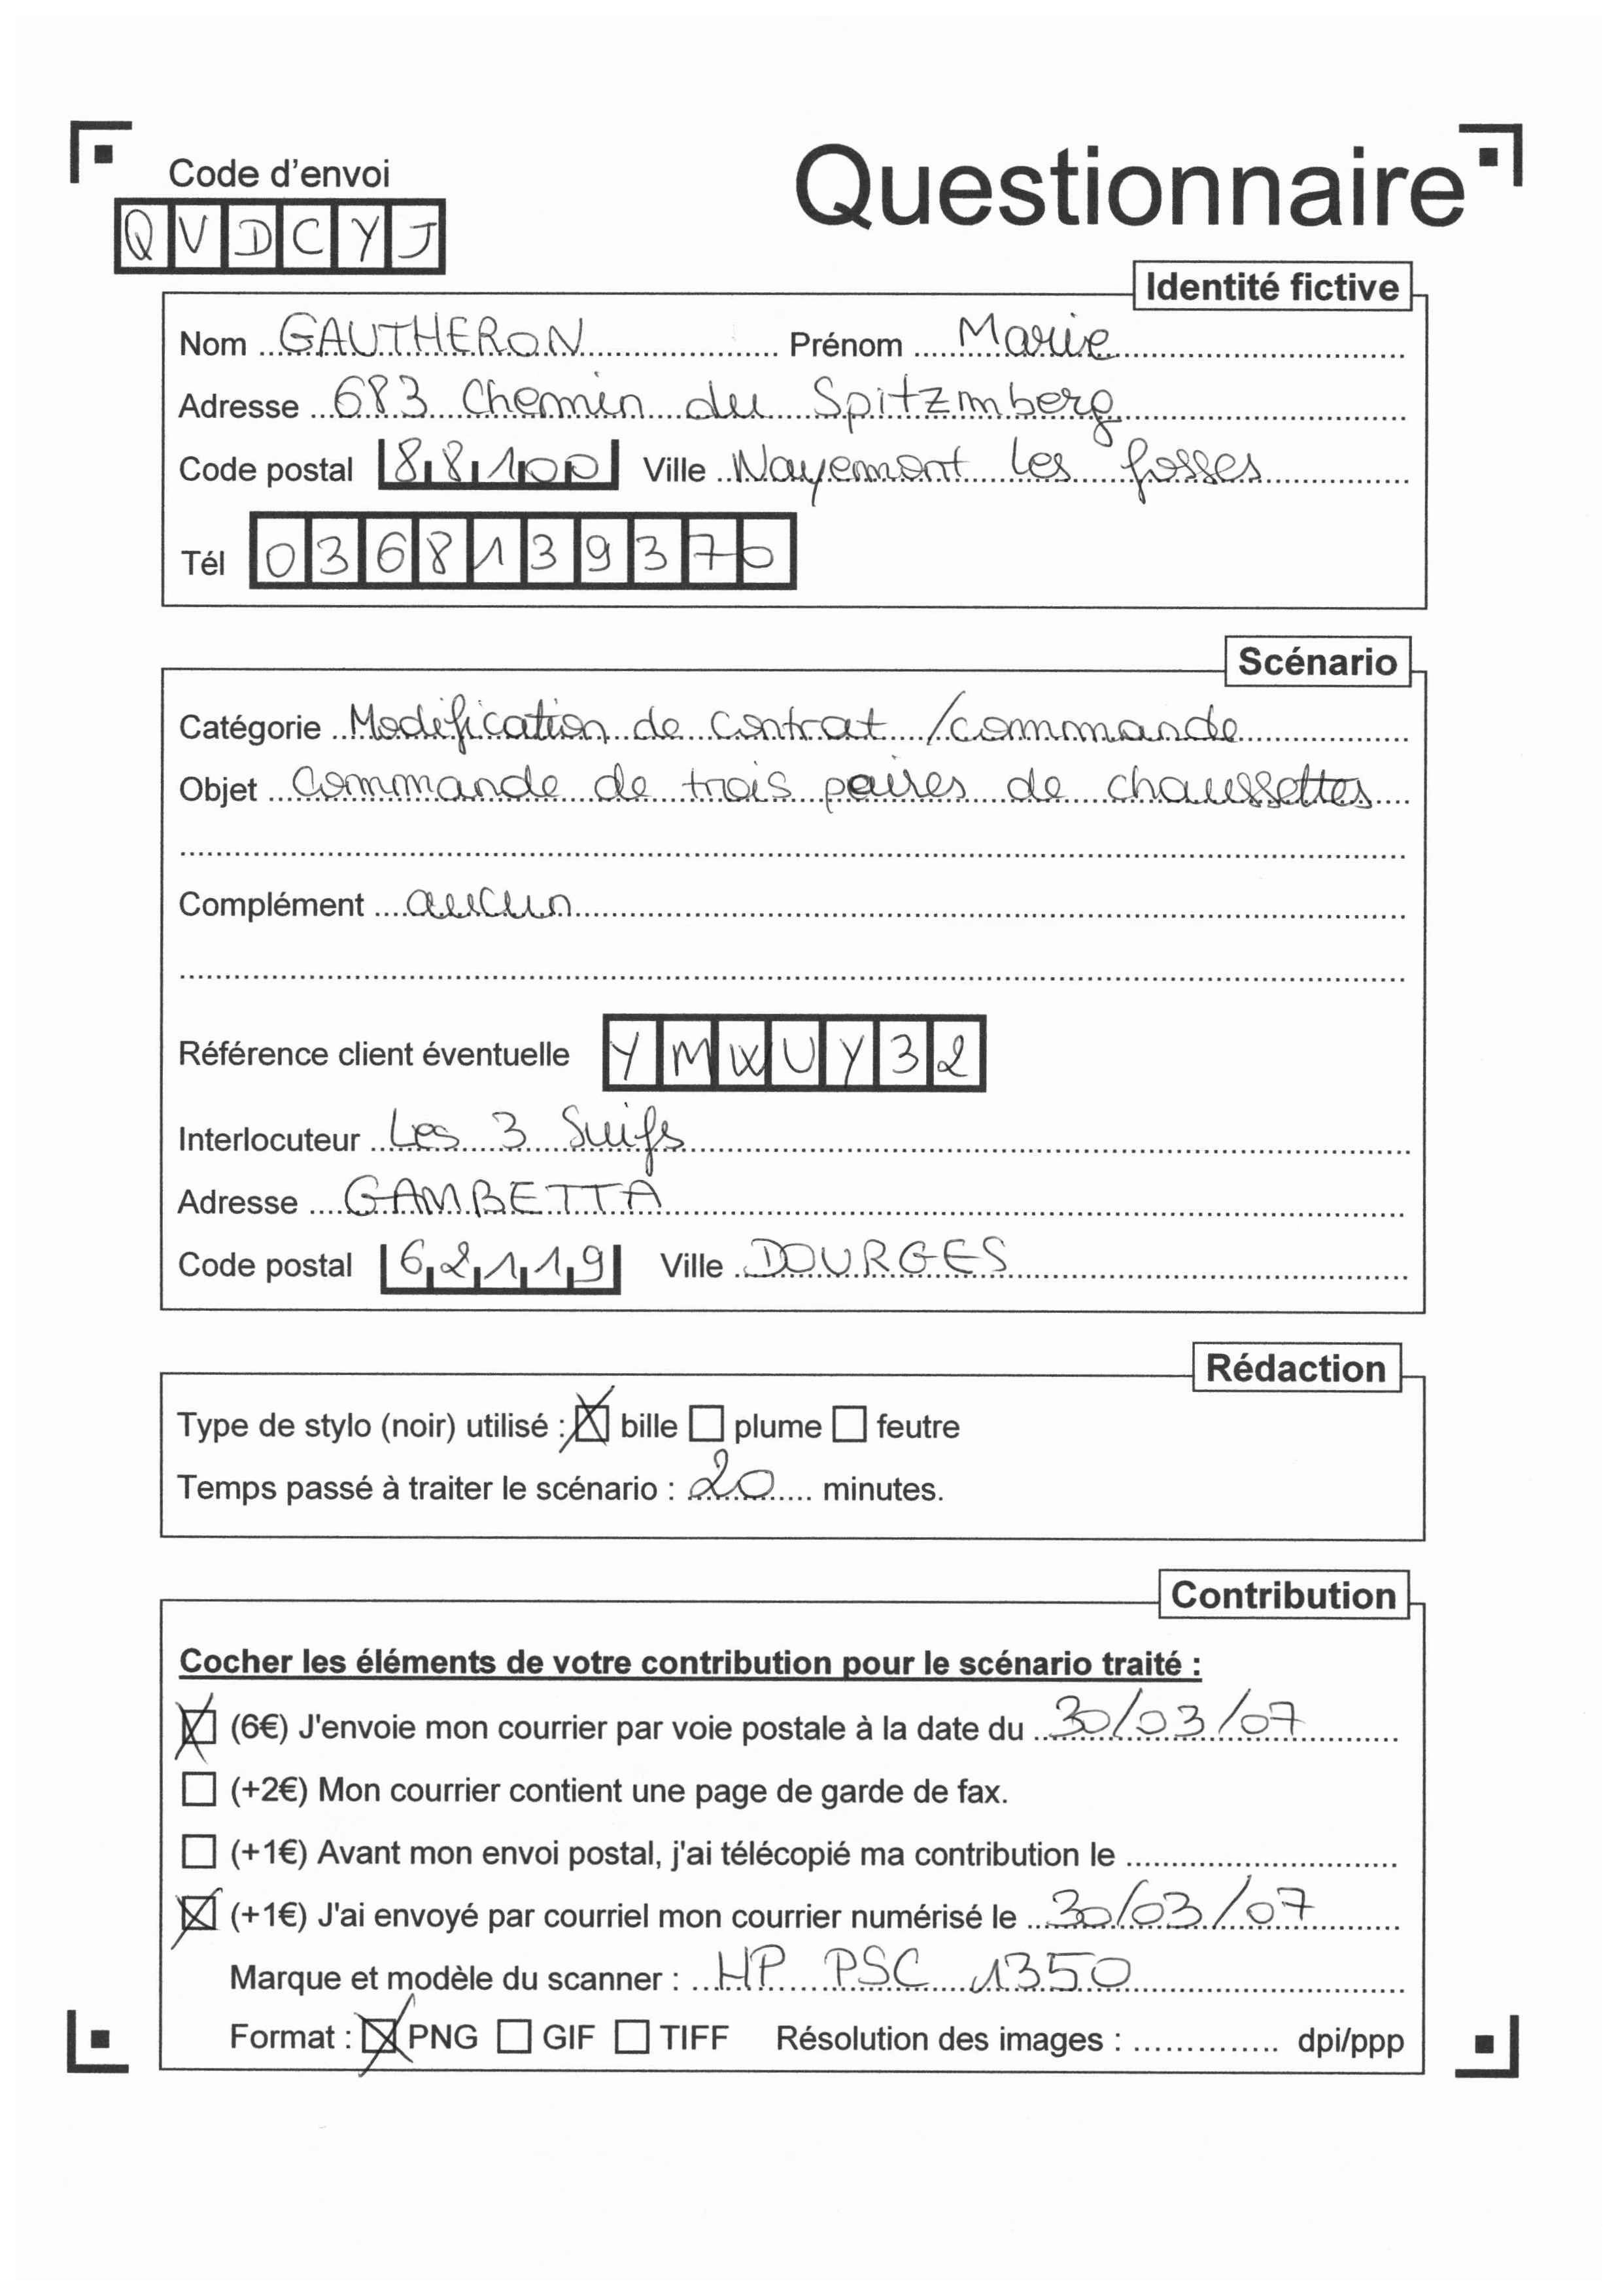 Questionnaire
Code d'envoi
QVDCYJ
Identité fictive
Nom GAUTHERON Prénom Marie
Adresse 683 Chemin du Spitzmberg
Code postal 88100 Ville Nayemont les fosses
Tél 0368139370
Scénario
Catégorie Modification de contrat /commande
Objet Commande de trois paires de chaussettes
Complément aucun
Référence client éventuelle YMWUY32
Interlocuteur Les 3 Suifs
Adresse GAMBETTA
Code postal 62119 Ville DOURGES
Rédaction
Type de stylo (noir) utilisé : ☒ bille ☐ plume ☐ feutre
Temps passé à traiter le scénario : 20 minutes.
Contribution
Cocher les éléments de votre contribution pour le scénario traité :
☒ (6€) J'envoie mon courrier par voie postale à la date du 30/03/07
☐ (+2€) Mon courrier contient une page de garde de fax.
☐ (+1€) Avant mon envoi postal, j'ai télécopié ma contribution le ..............................
☒ (+1€) J'ai envoyé par courriel mon courrier numérisé le 30/03/07
Marque et modèle du scanner : HP PSC 1350
Format : ☒ PNG ☐ GIF ☐ TIFF Résolution des images : .............. dpi/ppp